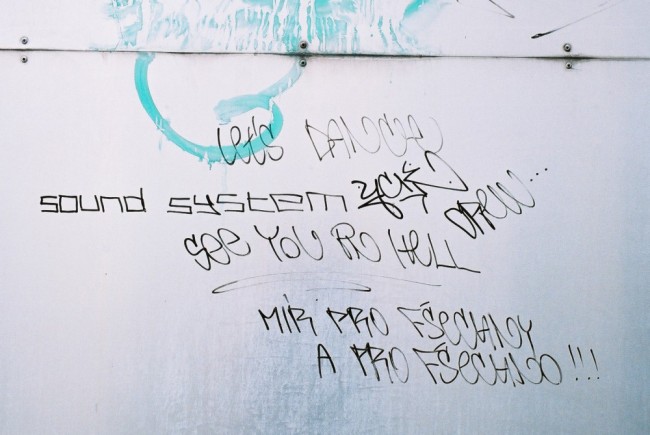 LET'S DANCE
sound system
CREW...
SEE YOU RO HELL
MÍR PRO FŠECHNY
A PRO FŠECHNO!!!